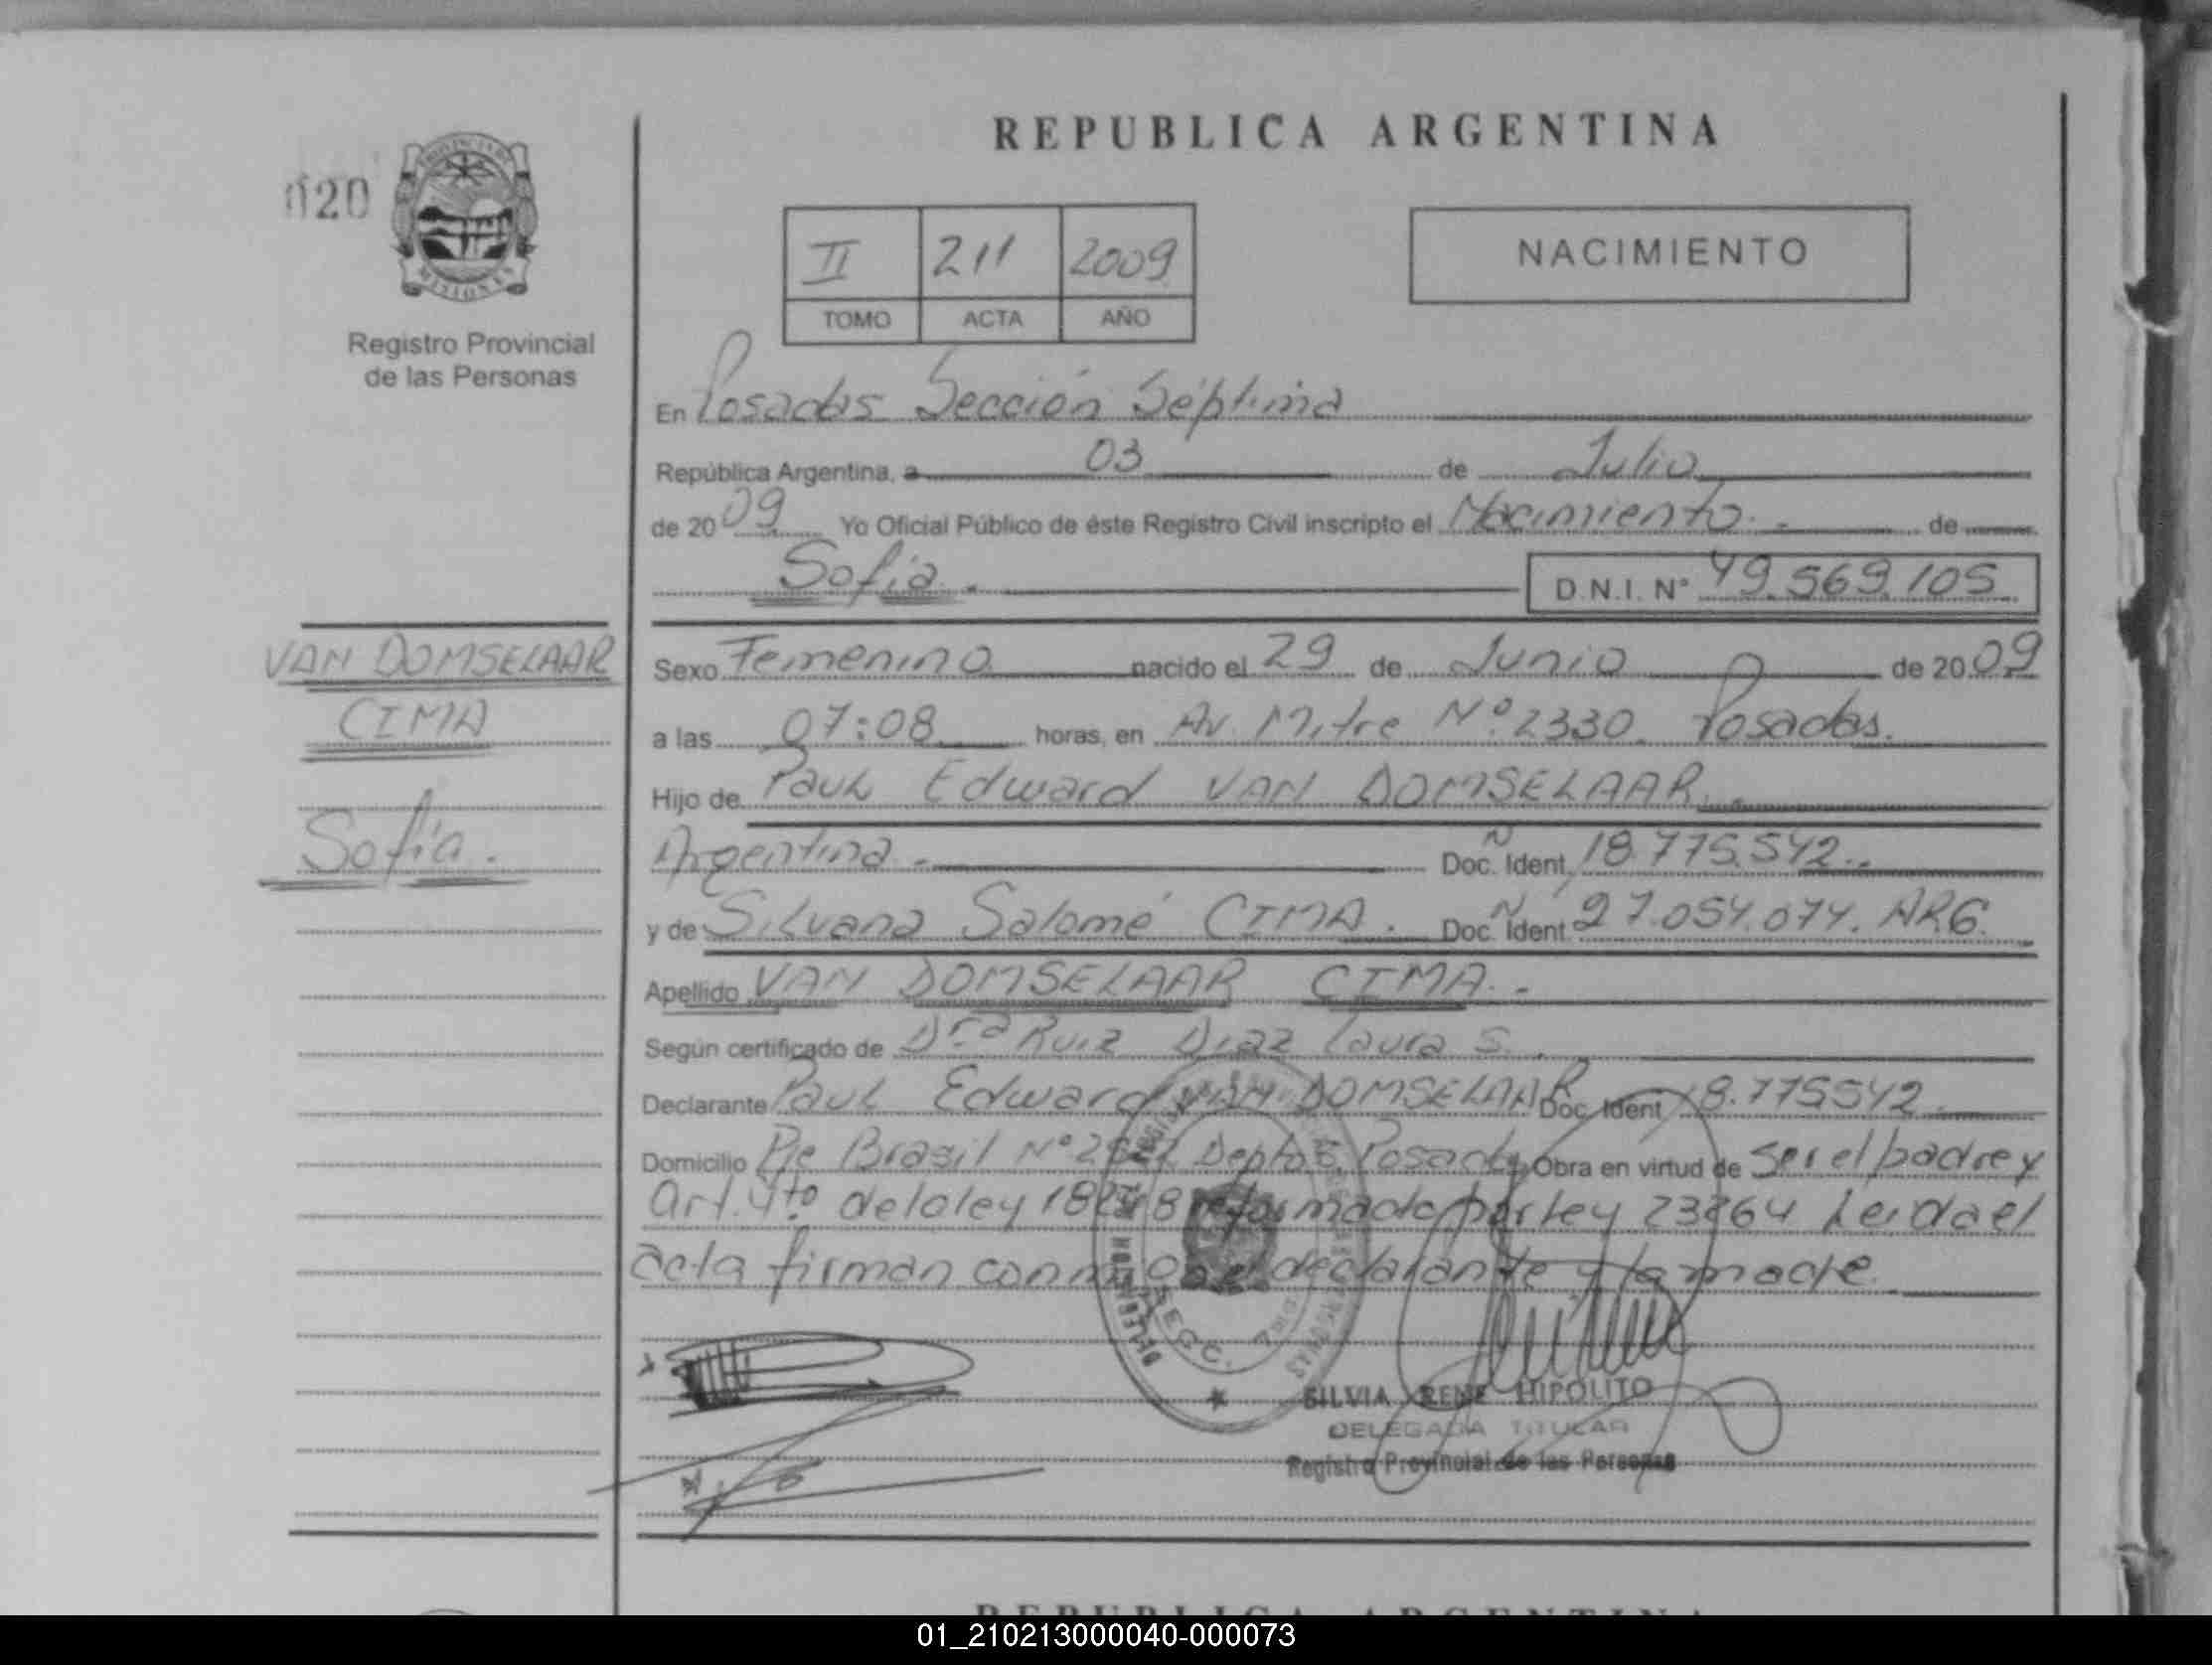 REPUBLICA ARGENTINA
020
PROVINCIA DE
MISIONES
Registro Provincial
de las Personas
II 211 2009
TOMO ACTA AÑO
NACIMIENTO
En Posadas Sección Séptima
República Argentina, a 03 de Julio
de 2009 Yo Oficial Público de éste Registro Civil inscripto el Nacimiento. de
Sofía. D.N.I. N° 49.569.105
VAN DOMSELAAR
CIMA
Sofía.
Sexo Femenino nacido el 29 de Junio de 2009
a las 07:08 horas, en Av. Mitre N° 2330. Posadas.
Hijo de Paul Edward VAN DOMSELAAR.
Argentina. Doc. Ident. 18.775.542.
y de Silvana Salomé CIMA. Doc. Ident. 27.054.074. ARG.
Apellido VAN DOMSELAAR CIMA.
Según certificado de Dra Ruiz Diaz Laura S.
Declarante Paul Edward VAN DOMSELAAR Doc. Ident. 18.775542
Domicilio Pje Brasil N° Posadas Obra en virtud de Ser el padre y
art. 4to. de la ley 18248 reformado por ley 23264 Leida el
acta firman conmigo el declarante y la madre.
SECC. 7
SILVIA RENE HIPOLITO
DELEGADA TITULAR
Registro Provincial de las Personas
REPUBLICA ARGENTINA
01_210213000040-000073